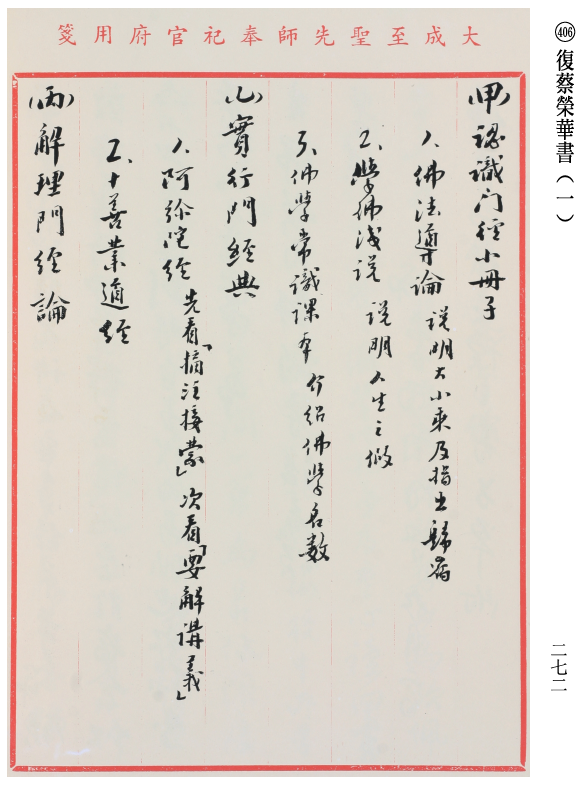 ㊻ 復蔡榮華書（一）
大成至聖先師奉祀官府用箋
（甲）認識门徑小冊子
1、佛法導論 説明大小乘及指出歸宿
2、學佛淺説 説明人生之修
3、佛學常識課本 介紹佛學名数
（乙）實行門經典
1、阿彌陀經 先看「摘注接蒙」次看「要解講義」
2、十善業道經
（丙）解理門經論
二七二